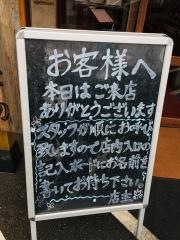 お客様へ
本日はご来店
ありがとうございます
スタッフが順にお呼び
致しますので店内入口の
記入ボードにお名前を
書いてお待ち下さい
店主